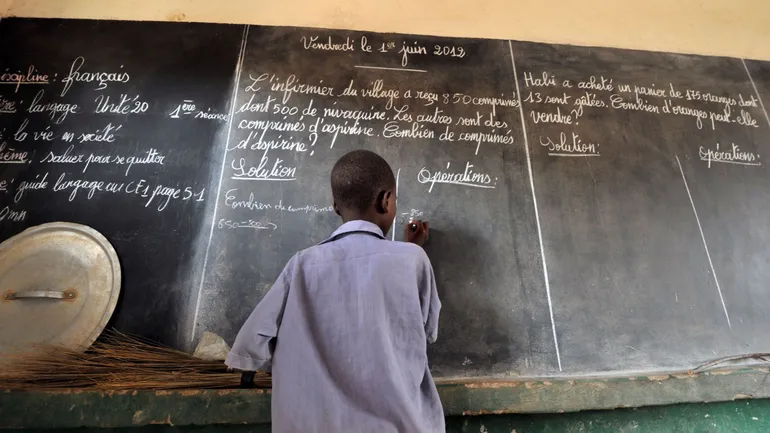 discipline: français
langage Unité 20 1ère séance
la vie en société
Saluer pour se quitter
guide langage au CE1 page 5-1
mn
Vendredi le 1er juin 2012
L'infirmier du village a reçu 850 comprimés
dont 500 de nivaquine. Les autres sont des
comprimés d'aspirine. Combien de comprimés
d'aspirine?
Solution
Opérations:
Combien de comprimé
850-500
850
Habi a acheté un panier de 175 oranges dont
13 sont gâtées. Combien d'oranges peut-elle
vendre?
Solution
Opérations: